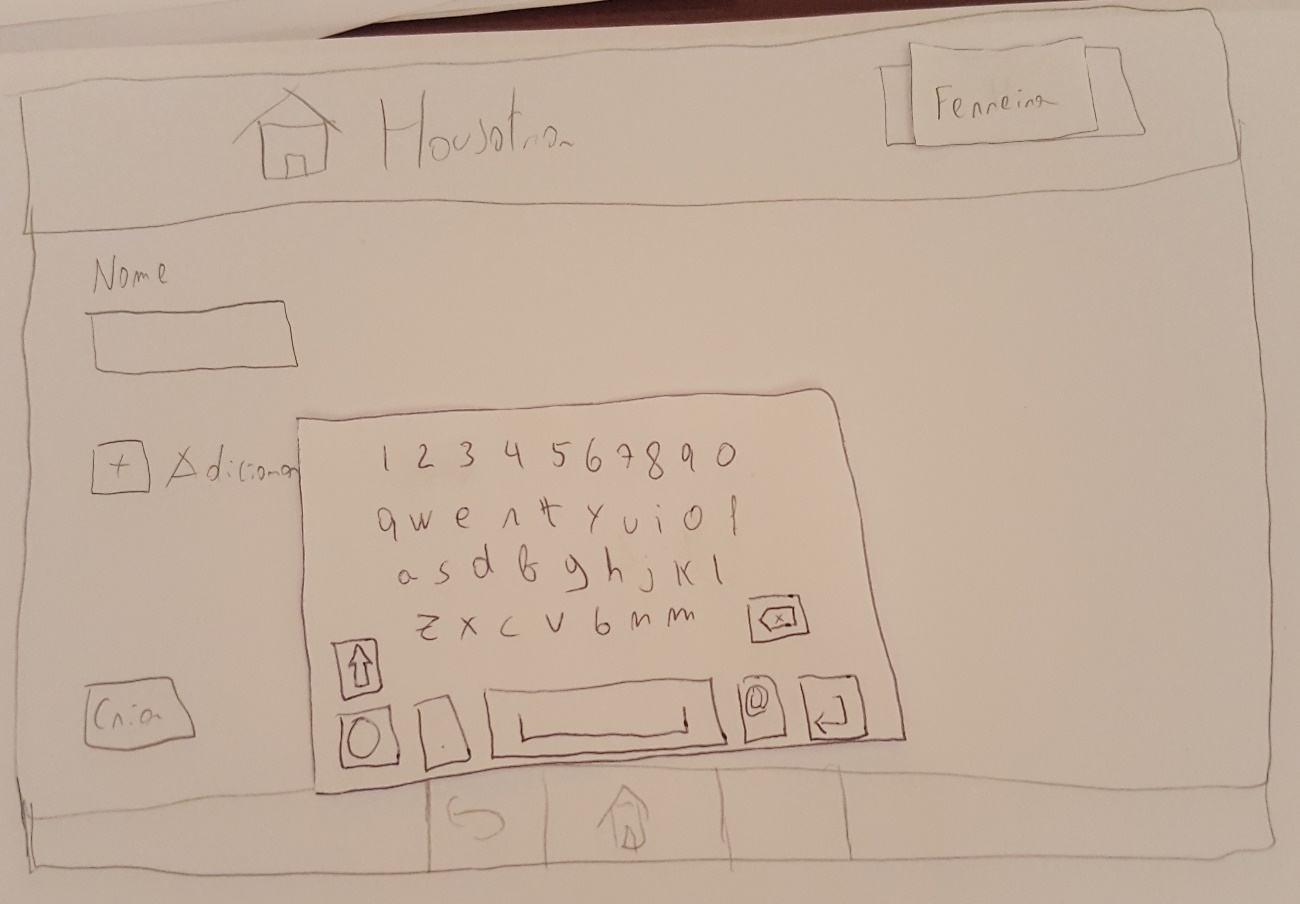 Housotron
Ferreira
Nome
+ Adicionar
1 2 3 4 5 6 7 8 9 0
q w e r t y u i o p
a s d f g h j k l
z x c v b n m
.
@
Criar